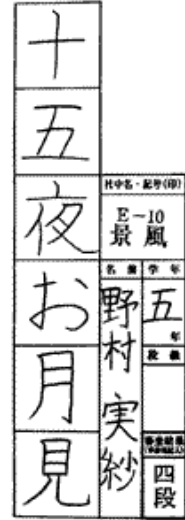 十五夜お月見
社中名・記号(印)
E-10
景風
名前
野村実紗
学年
五年
段級
四段